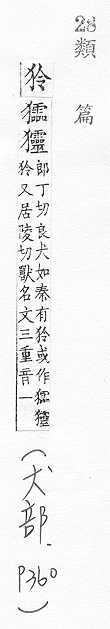 28
類篇
狑
郎丁切良犬如秦有狑或作
狑又居陵切獸名文三重音一
(犬部.
P360)